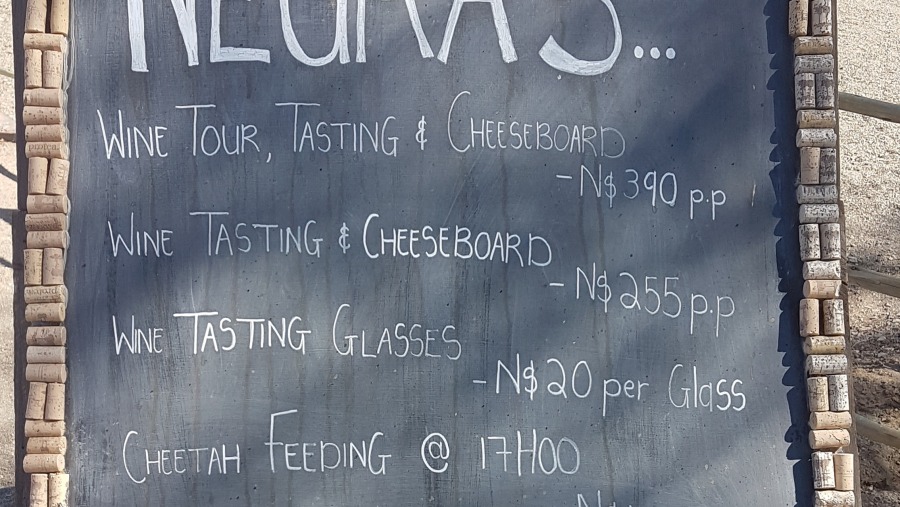 NEGRA'S...
WINE TOUR, TASTING & CHEESEBOARD
- N$390 p.p
WINE TASTING & CHEESEBOARD
- N$255 p.p
WINE TASTING GLASSES
- N$20 per Glass
CHEETAH FEEDING @ 17H00